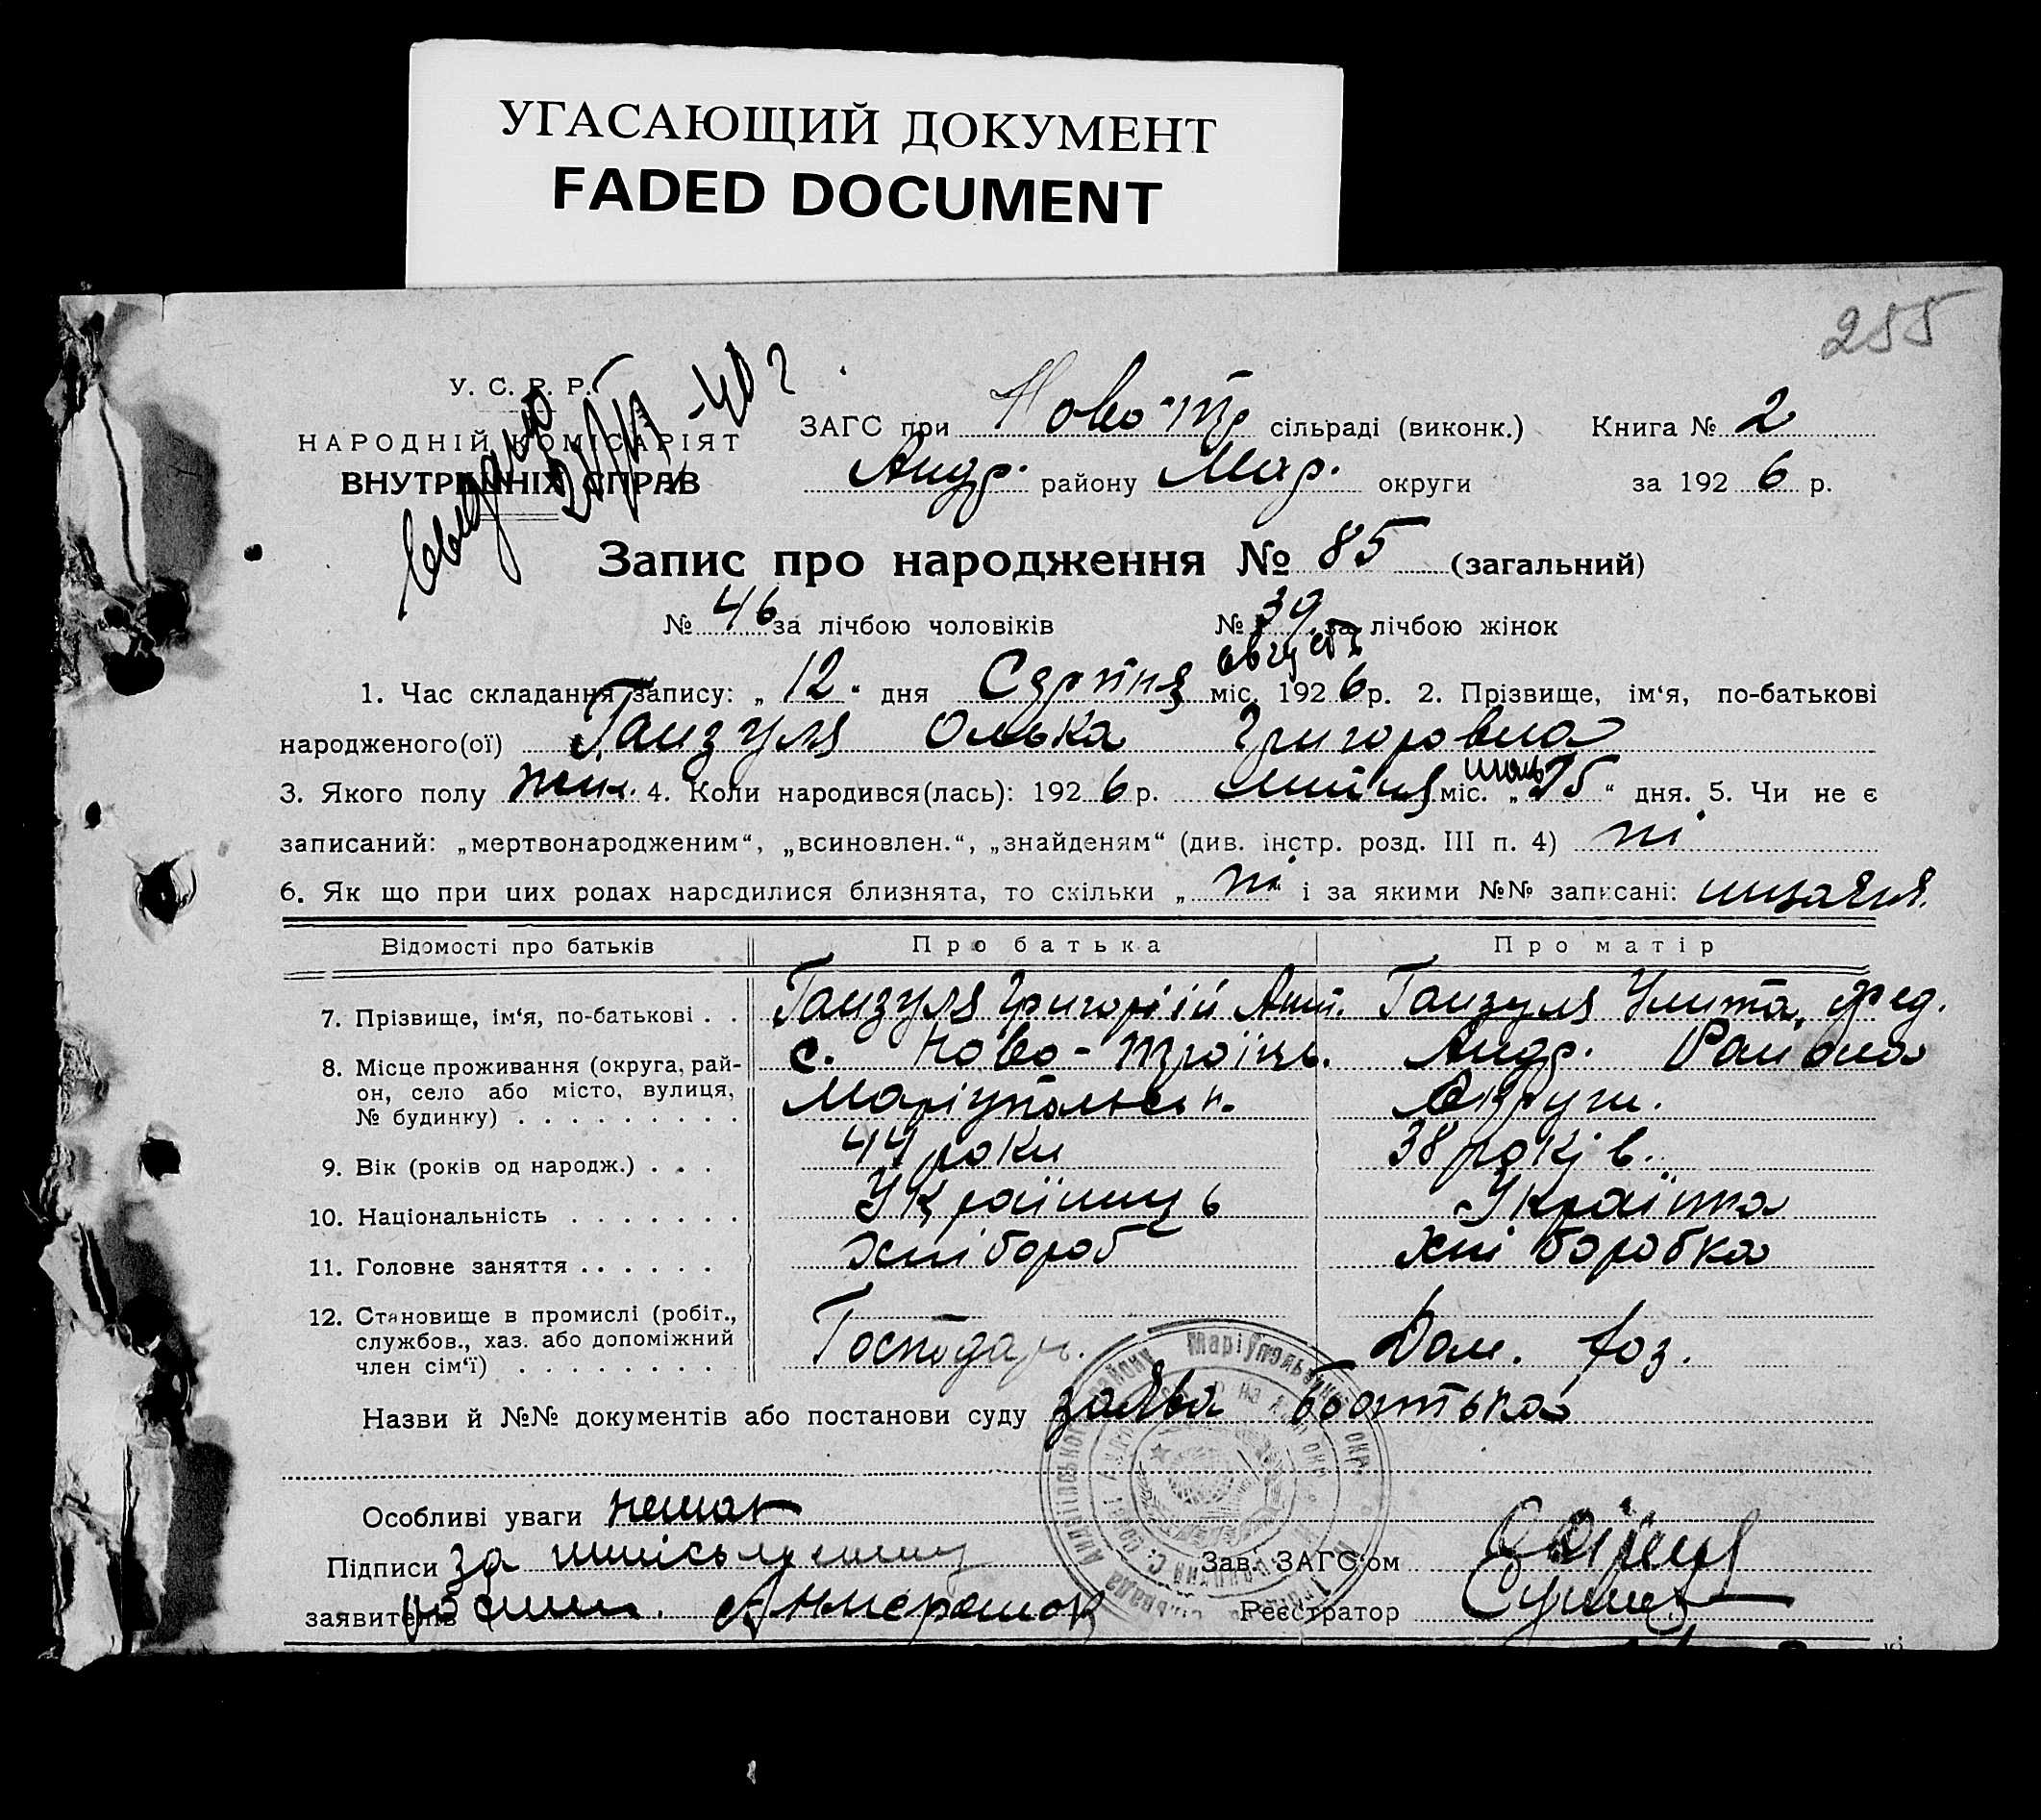 УГАСАЮЩИЙ ДОКУМЕНТ
FADED DOCUMENT
255
У. С. Р. Р.
НАРОДНІЙ КОМІСАРІЯТ
ВНУТРІШНІХ СПРАВ
ЗАГС при Ново-Тр сільраді (виконк.) Книга № 2
Андр. району Мар. округи за 1926 р.
Запис про народження № 85 (загальний)
№ 46 за лічбою чоловіків № 39 за лічбою жінок
август
1. Час складання запису: „ 12 “ дня Серпня міс. 1926 р. 2. Прізвище, ім‘я, по-батькові
народженого(ої) Ганзуля Олька Григоровна
3. Якого полу жін. 4. Коли народився(лась): 1926 р. липня июль міс. „ 25 “ дня. 5. Чи не є
записаний: „мертвонародженим“, „всиновлен.“, „знайденям“ (див. інстр. розд. III п. 4) ні
6. Як що при цих родах народилися близнята, то скільки „ ні і за якими №№ записані:
Відомості про батьків Про батька Про матір
7. Прізвище, ім‘я, по-батькові . . Ганзуля Григорій Ант. Ганзуля Улита Фед.
8. Місце проживання (округа, рай-
он, село або місто, вулиця,
№ будинку) . . . . . . . . .
с. Ново-Троїць. Андр. Района
Маріупольськ. Округи.
9. Вік (років од народж.) . . . 44 роки 38 років.
10. Національність . . . . . . . Українць Українка
11. Головне заняття . . . . . . хлібороб хліборобка
12. Становище в промислі (робіт.,
службов., хаз. або допоміжний
член сім‘ї) . . . . . . . .
Господар. Дом. хоз.
Назви й №№ документів або постанови суду заява батька
Особливі уваги немає
Підписи за
заявителів
Зав. ЗАГС‘ом
Реєстратор